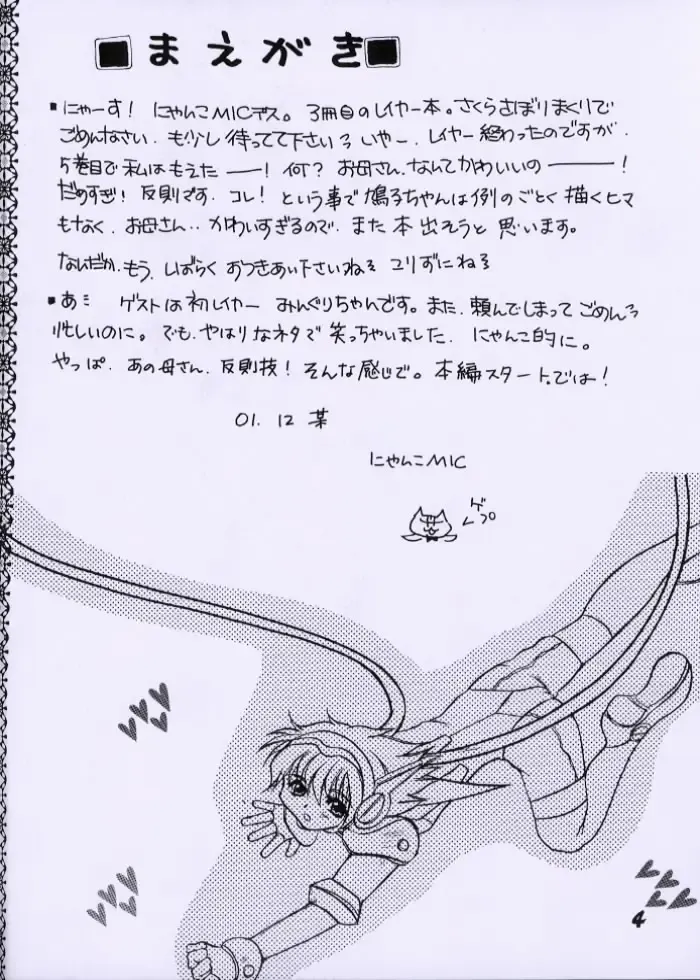 まえがき
■にゃーす! にゃんこMICデス。3冊目のレイヤー本。さくらさぼりまくりで
ごめんなさい. も少し待ってて下さいる いやー. レイヤー終わったのですが.
5巻目で私はもえたーー! 何? お母さん. なんてかわいいのーーー!
だめすぎ! 反則です. コレ! という事で鳩子ちゃんは例のごとく描くヒマ
もなく. お母さん‥かわいすぎるので. また本出そうと思います。
なんだか. もう. しばらくおつきあい下さいねる コリずにねる
■あミ ゲストは初レイヤー みんぐりちゃんです。また. 頼んでしまってごめんる
忙しいのに。でも. やはりなネタで笑っちゃいました. にゃんこ的に。
やっぱ. あの母さん. 反則技! そんな感じで。本編スタート. では!
01. 12 某
にゃんこMIC
ゲ
プロ
4